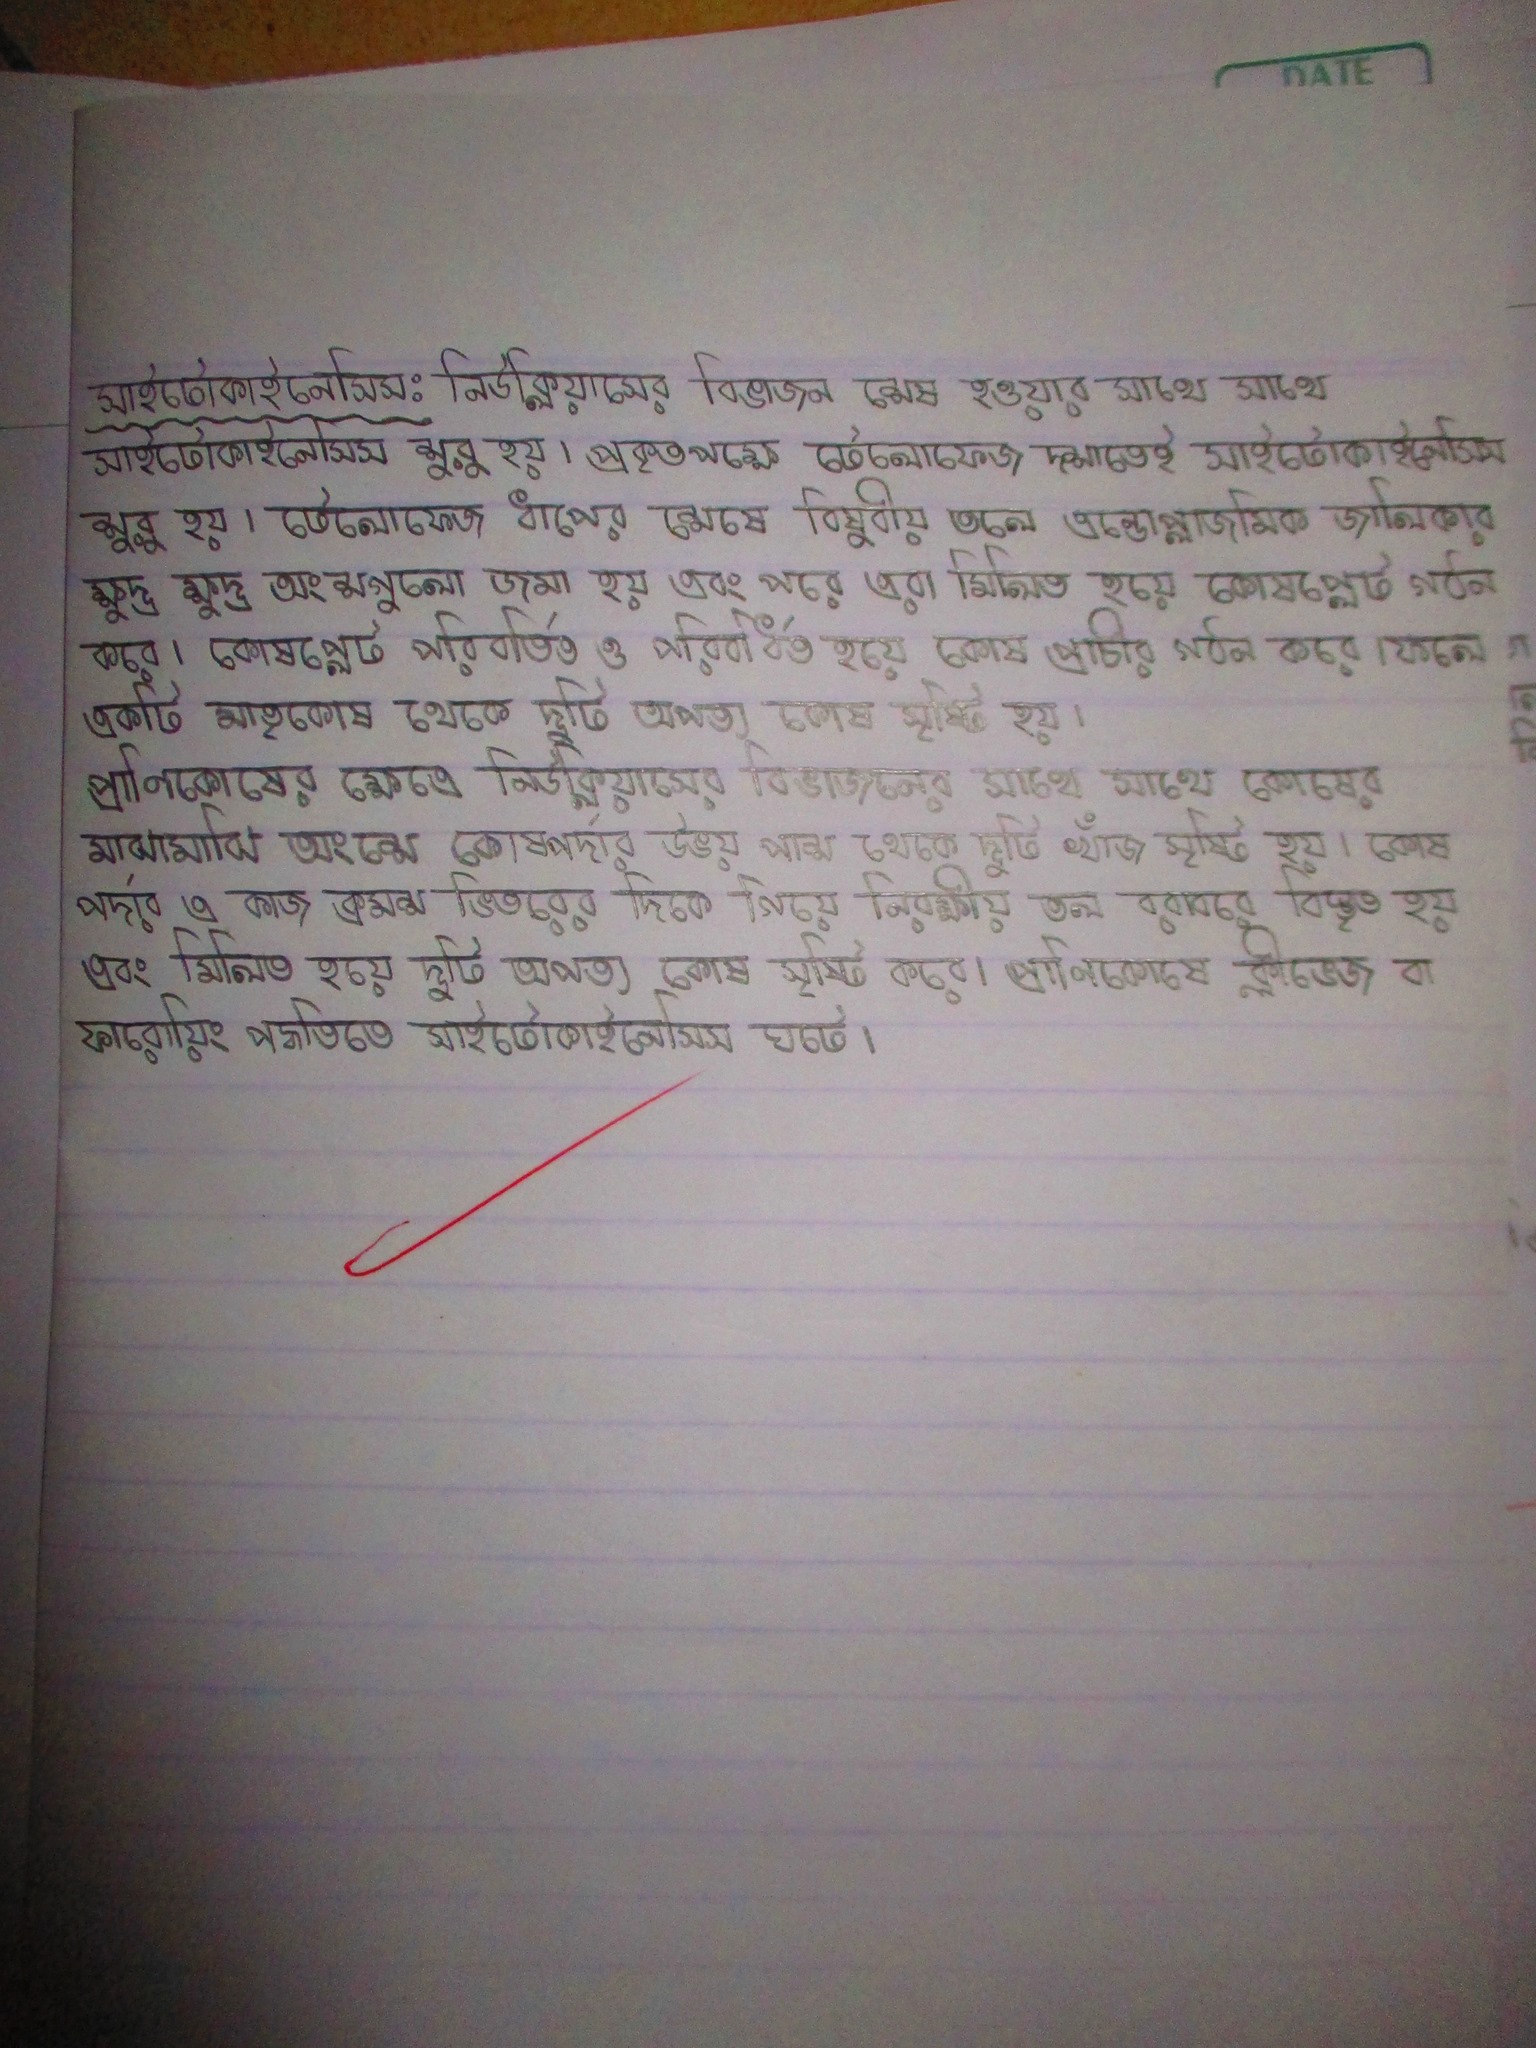 DATE
সাইটোকাইনেসিসঃ নিউক্লিয়াসের বিভাজন শেষ হওয়ার সাথে সাথে
সাইটোকাইনেসিস শুরু হয়। প্রকৃতপক্ষে টেলোফেজ দশাতেই সাইটোকাইনেসিস
শুরু হয়। টেলোফেজ ধাপের শেষে বিষুবীয় তলে এন্ডোপ্লাজমিক জালিকার
ক্ষুদ্র ক্ষুদ্র অংশগুলো জমা হয় এবং পরে এরা মিলিত হয়ে কোষপ্লেট গঠন
করে। কোষপ্লেট পরিবর্তিত ও পরিবর্ধিত হয়ে কোষ প্রাচীর গঠন করে। ফলে
একটি মাতৃকোষ থেকে দুটি অপত্য কোষ সৃষ্টি হয়।
প্রাণিকোষের ক্ষেত্রে নিউক্লিয়াসের বিভাজনের সাথে সাথে কোষের
মাঝামাঝি অংশে কোষপর্দার উভয় পাশ থেকে দুটি খাঁজ সৃষ্টি হয়। কোষ
পর্দার এ কাজ ক্রমশ ভিতরের দিকে গিয়ে নিরক্ষীয় তল বরাবরে বিস্তৃত হয়
এবং মিলিত হয়ে দুটি অপত্য কোষ সৃষ্টি করে। প্রাণিকোষে ক্লীভেজ বা
ফারোয়িং পদ্ধতিতে সাইটোকাইনেসিস ঘটে।